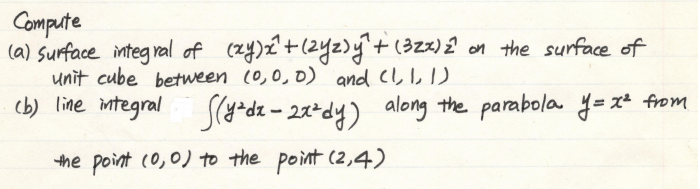 Compute
(a) surface integral of (xy)x̂ + (2yz)ŷ + (3zx)ẑ on the surface of
unit cube between (0,0,0) and (1,1,1)
(b) line integral ∫(y²dx - 2x²dy) along the parabola y = x² from
the point (0,0) to the point (2,4)